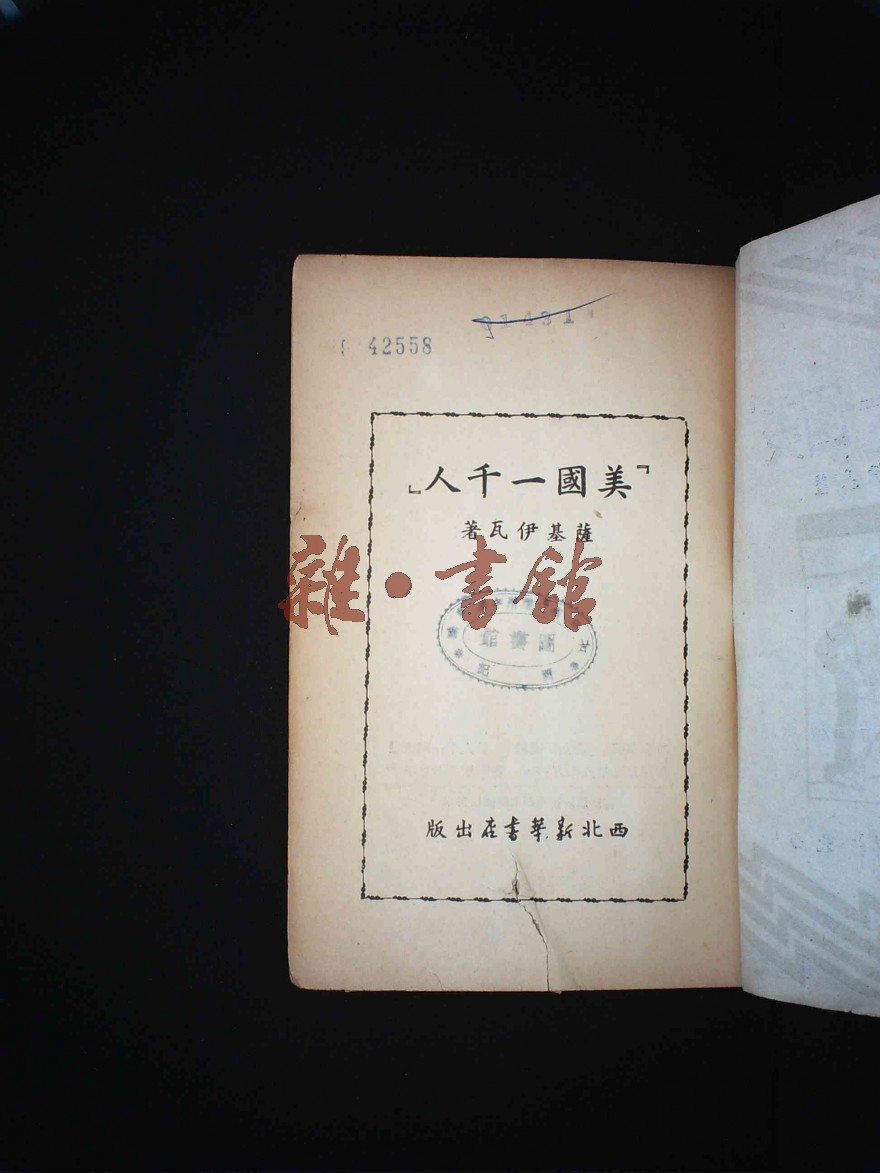 91431
42558
「美國一千人」
薩基伊瓦著
雜·書館
圖書館
西北新華書店出版